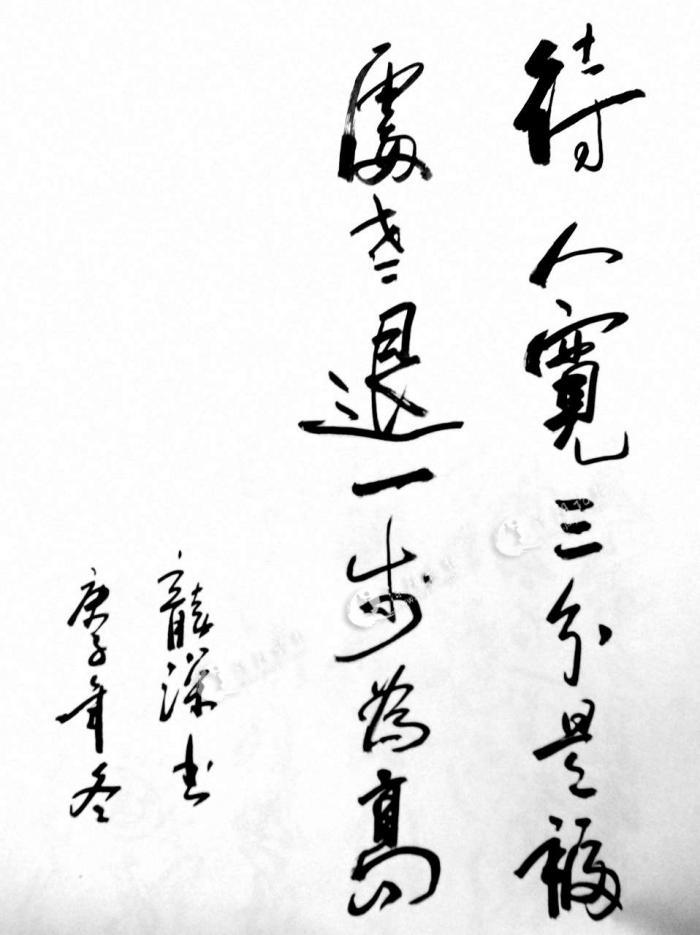 待人寬三分是福
處世退一步為高
龍深书
庚子年冬